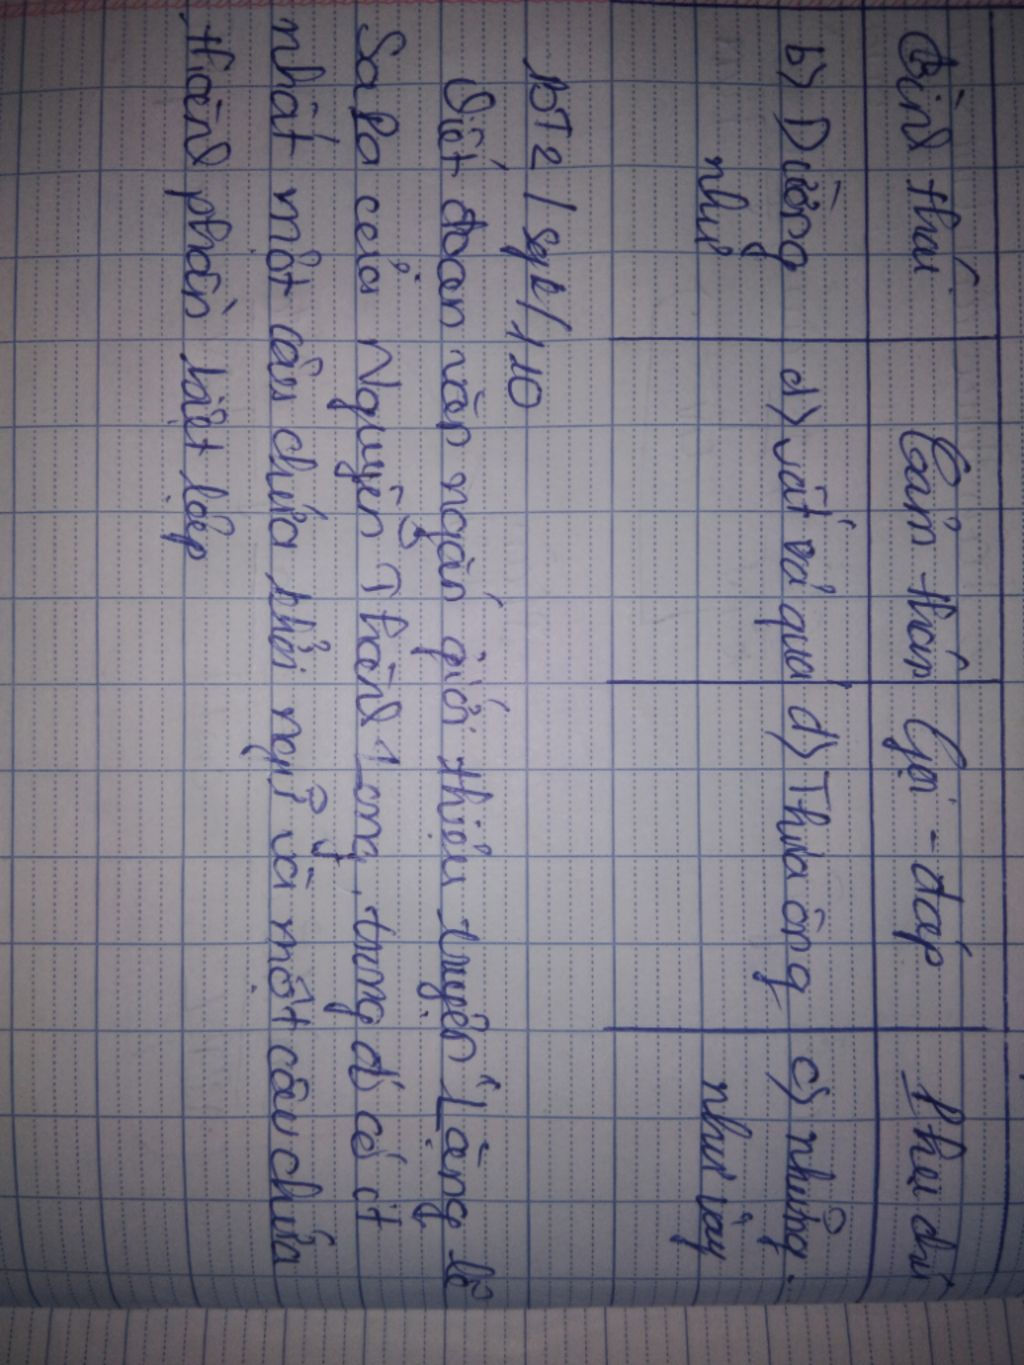 Tình thái Cảm thán Gọi - đáp Phụ chú
b) Dường d) vất vả quá d) Thưa ông c) những
như như vậy
BT2 / sgk / 110
Viết đoạn văn ngắn giới thiệu truyện Lặng lẽ
Sa Pa của Nguyễn Thành Long, trong đó có ít
nhất một câu chứa khởi ngữ và một câu chứa
thành phần biệt lập